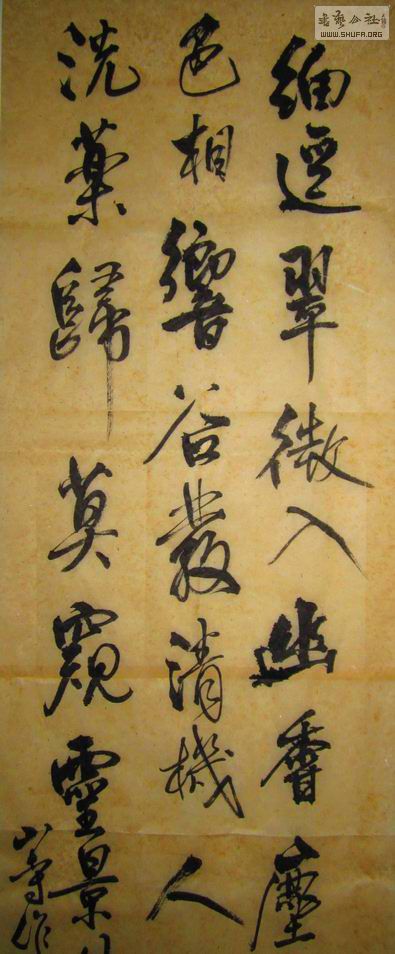 書藝公社
WWW.SHUFA.ORG
細逕翠微入幽香塵
色相響谷發清機人
洗藥歸莫窺靈景
山寺作